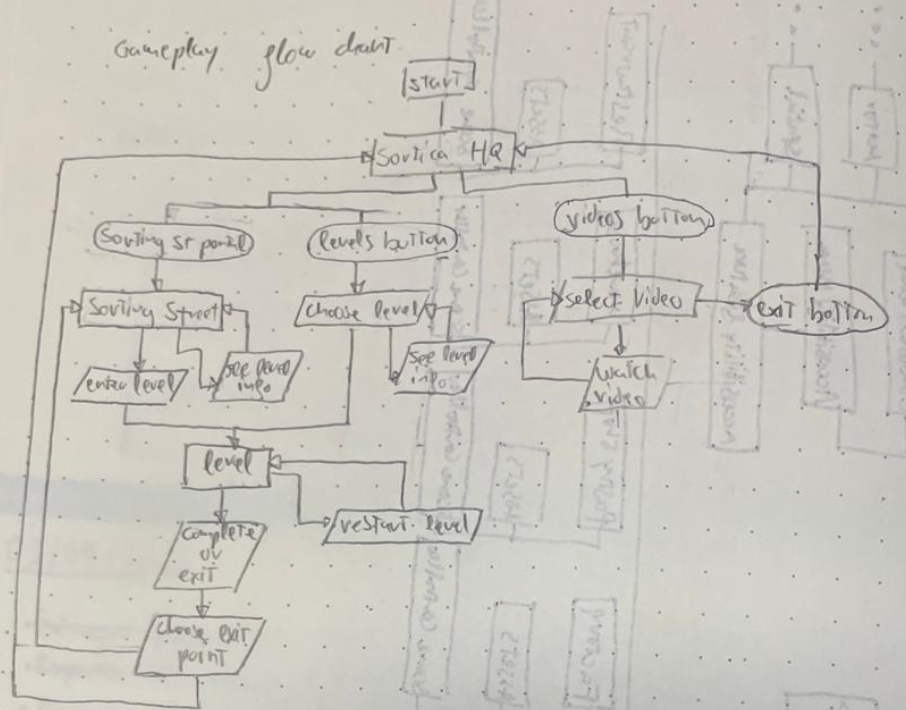 Gameplay flow chart
start
Sortica HQ
Sorting st portal
levels button
videos button
Sorting Street
choose level
select video
exit button
enter level
see level
info
see level
info
watch
video
level
restart level
complete
or
exit
choose exit
point